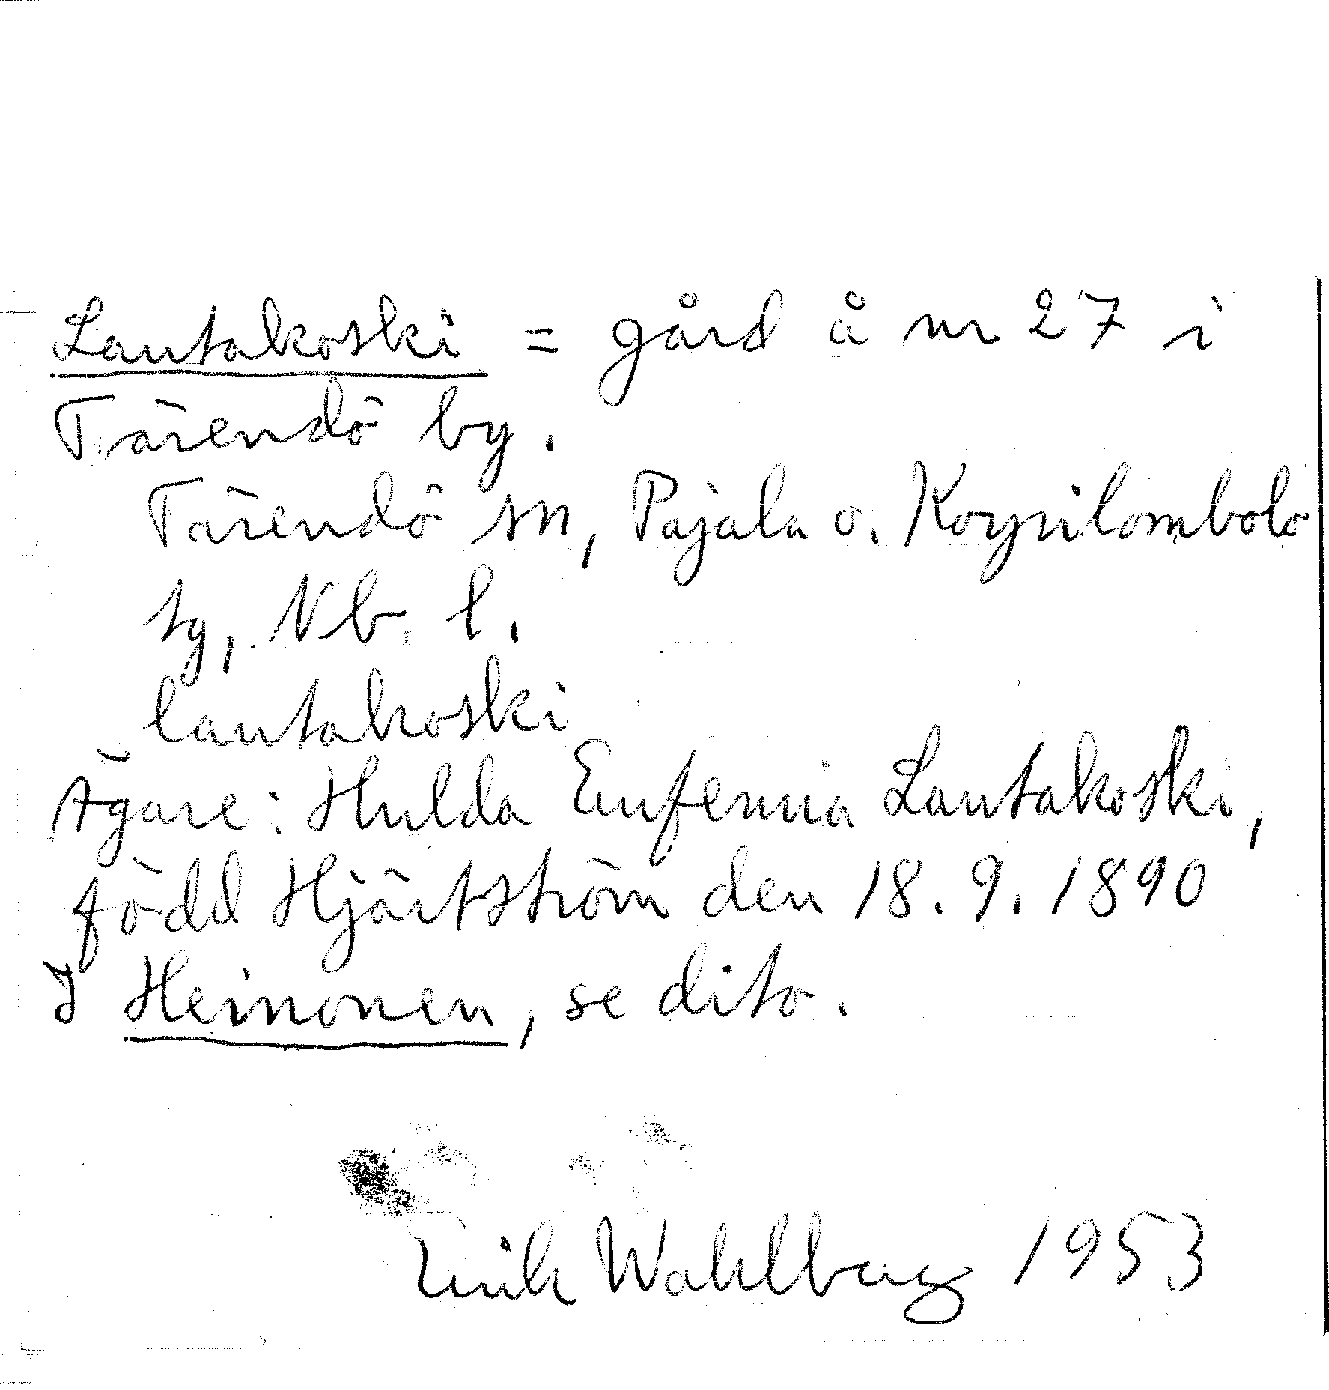 Lautakoski = gård å nr 27 i
Tärendö by.
Tärendö sn, Pajala o. Korpilombolo
tg, Nb. l.
lautakoski
Ägare: Hulda Eufemia Lautakoski,
född Hjärtström den 18.9.1890
I Heinonen, se dito.
Erik Wahlberg 1953